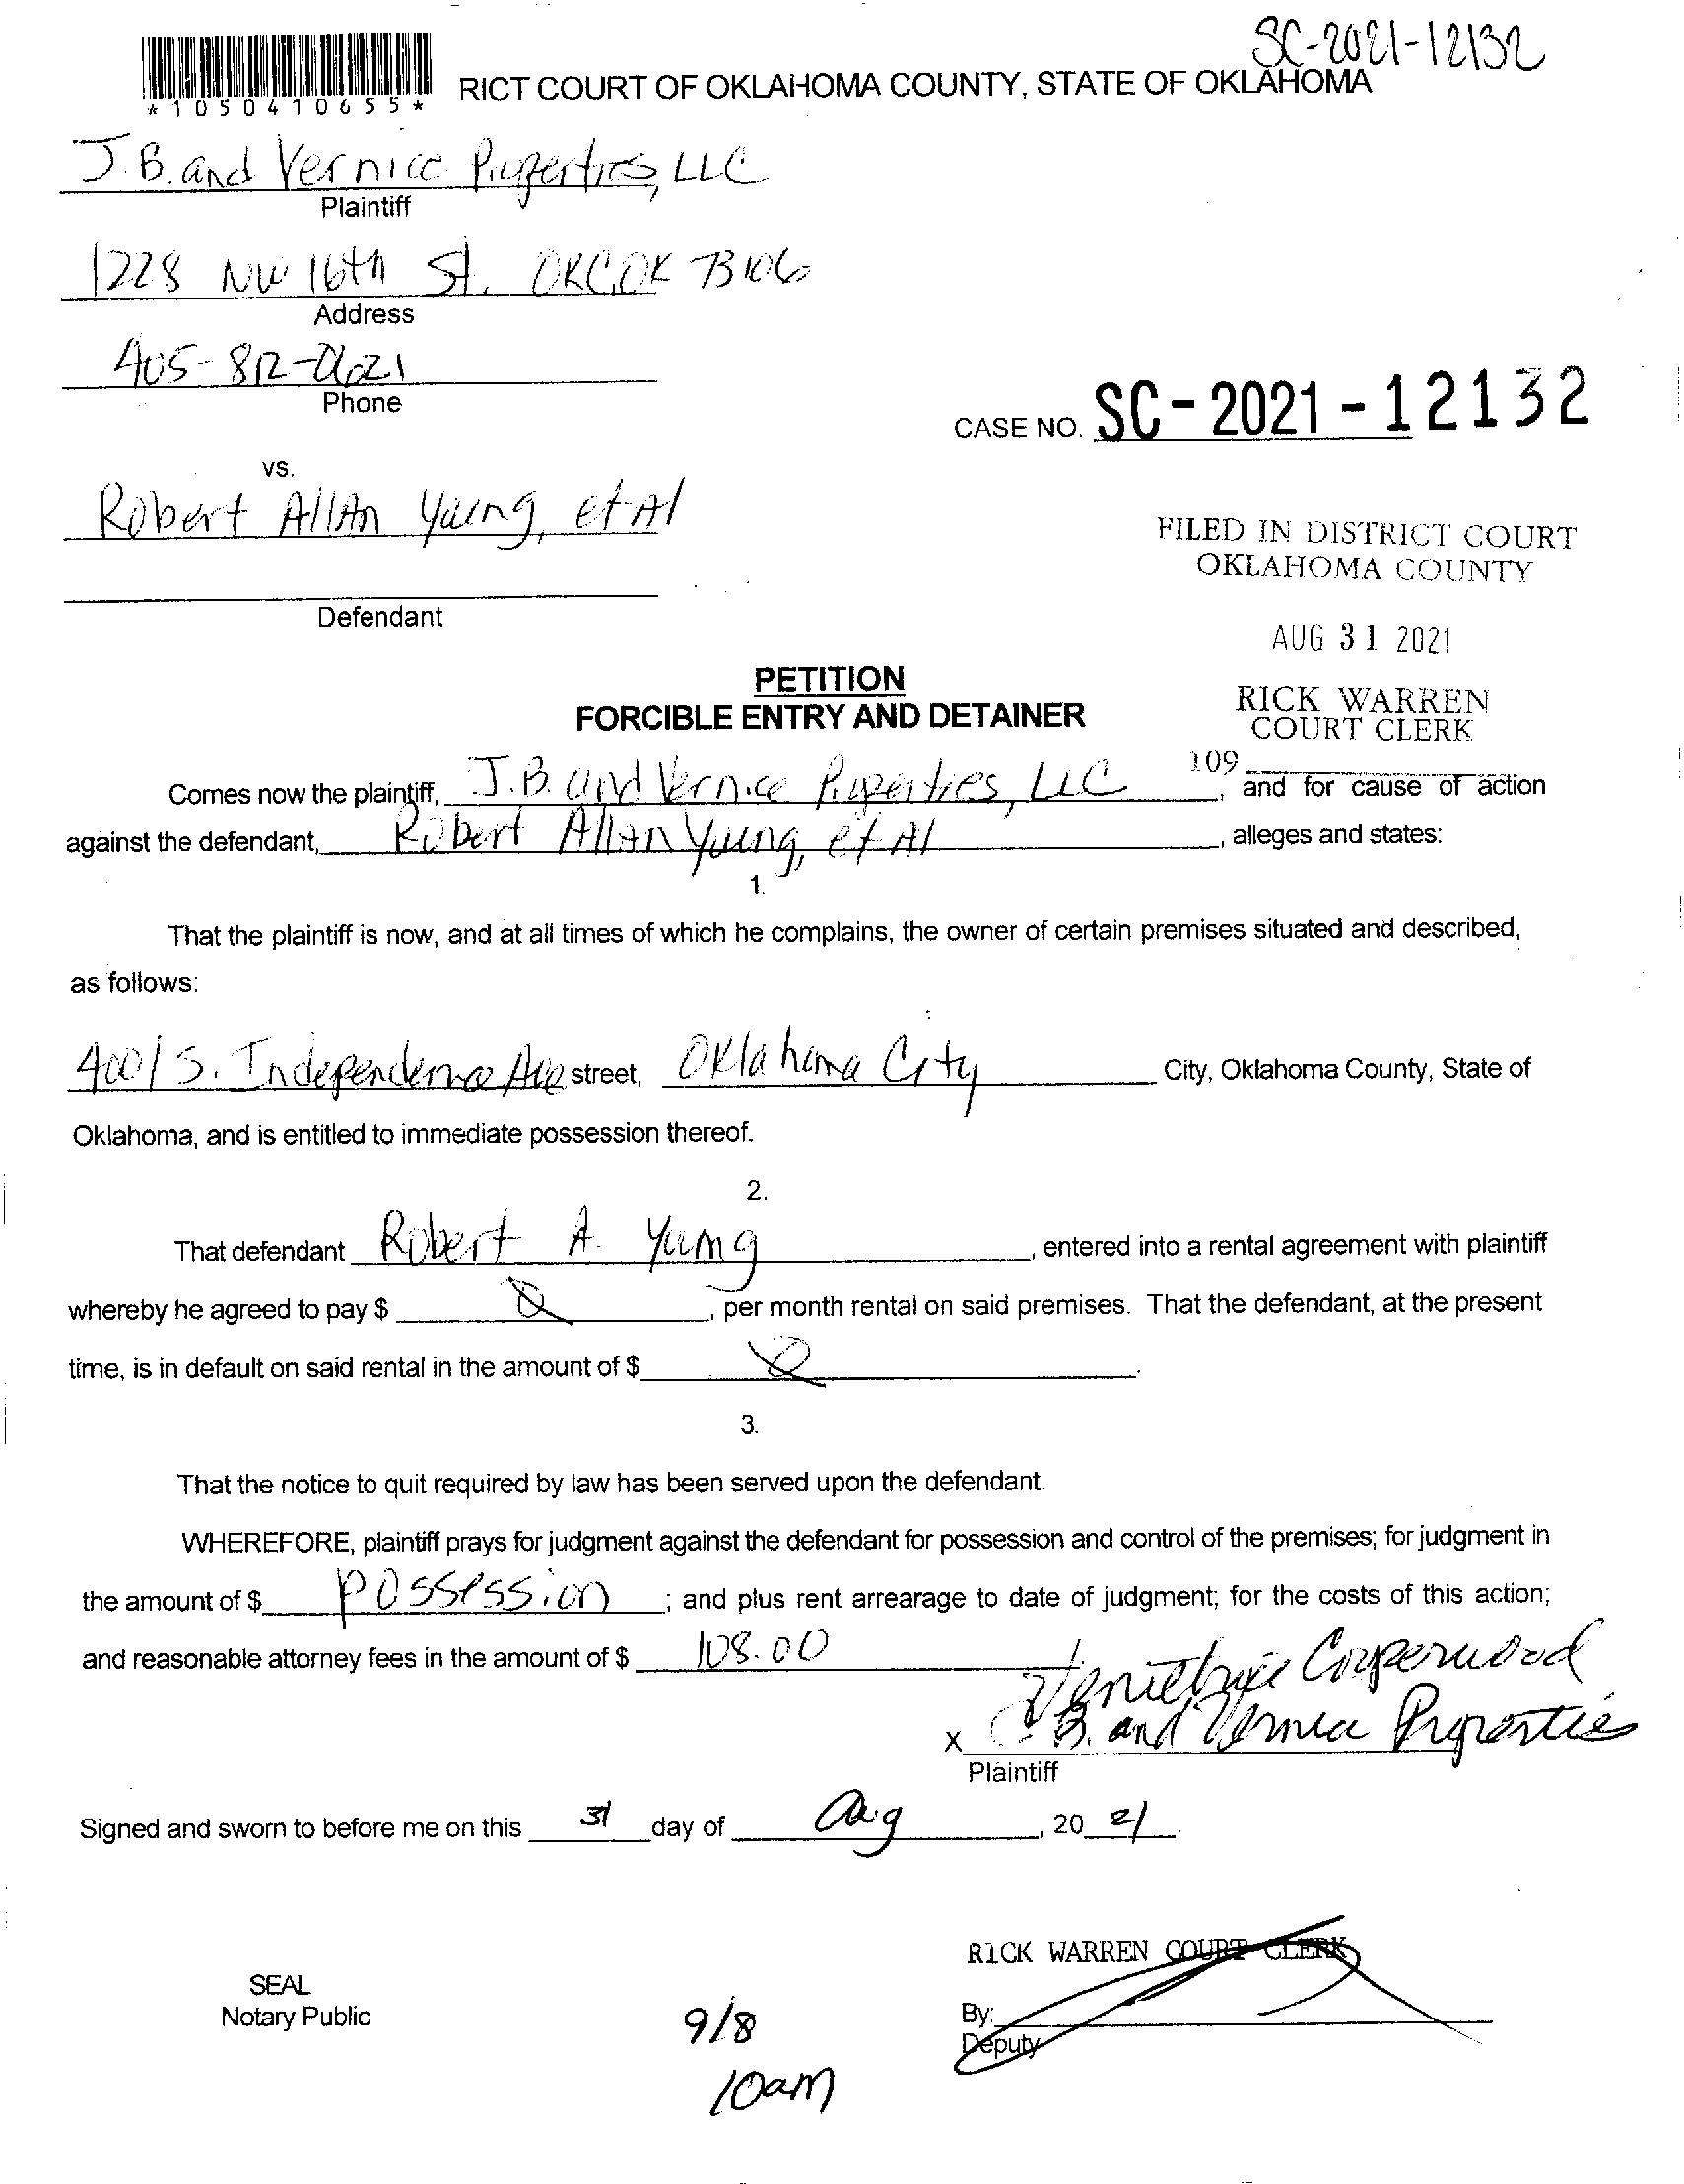 SC-2021-12132
RICT COURT OF OKLAHOMA COUNTY, STATE OF OKLAHOMA
*1050410655*
J.B. and Vernice Properties, LLC
Plaintiff
1228 NW 16th St. OKC, OK 73106
Address
405-812-0621
Phone
CASE NO. SC-2021-12132
vs.
Robert Allan Young, et Al
FILED IN DISTRICT COURT
OKLAHOMA COUNTY
Defendant
AUG 31 2021
PETITION
FORCIBLE ENTRY AND DETAINER
RICK WARREN
COURT CLERK
109
Comes now the plaintiff, J.B. and Vernice Properties, LLC, and for cause of action
against the defendant, Robert Allan Young, et Al, alleges and states:
1.
That the plaintiff is now, and at all times of which he complains, the owner of certain premises situated and described,
as follows:
4001 S. Independence Ave street, Oklahoma City City, Oklahoma County, State of
Oklahoma, and is entitled to immediate possession thereof.
2.
That defendant Robert A. Young, entered into a rental agreement with plaintiff
whereby he agreed to pay $ 0, per month rental on said premises. That the defendant, at the present
time, is in default on said rental in the amount of $ 0.
3.
That the notice to quit required by law has been served upon the defendant.
WHEREFORE, plaintiff prays for judgment against the defendant for possession and control of the premises; for judgment in
the amount of $ possession; and plus rent arrearage to date of judgment; for the costs of this action;
and reasonable attorney fees in the amount of $ 108.00
Copperwood
X J.B. and Vernice Properties
Plaintiff
Signed and sworn to before me on this 31 day of Aug, 20 21.
RICK WARREN COURT CLERK
SEAL
Notary Public
By:
Deputy
9/8
10am